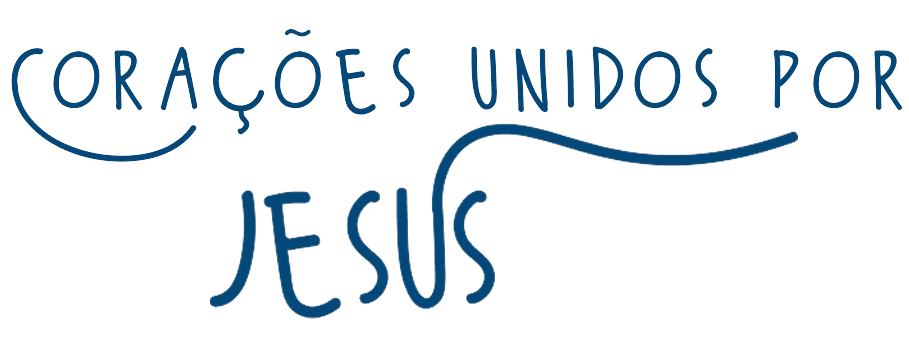 CORAÇÕES UNIDOS POR
JESUS